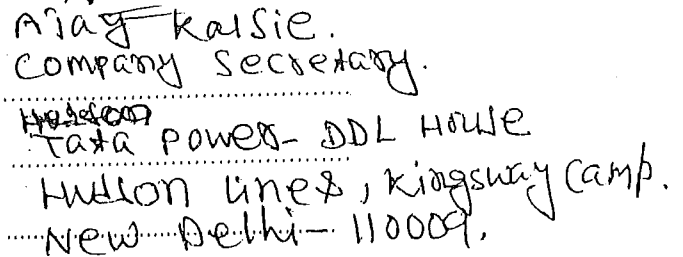 Ajay Kalsie.
Company Secretary.
Tata Power- DDL House
Hudson Lines, Kingsway Camp.
New Delhi- 110009.